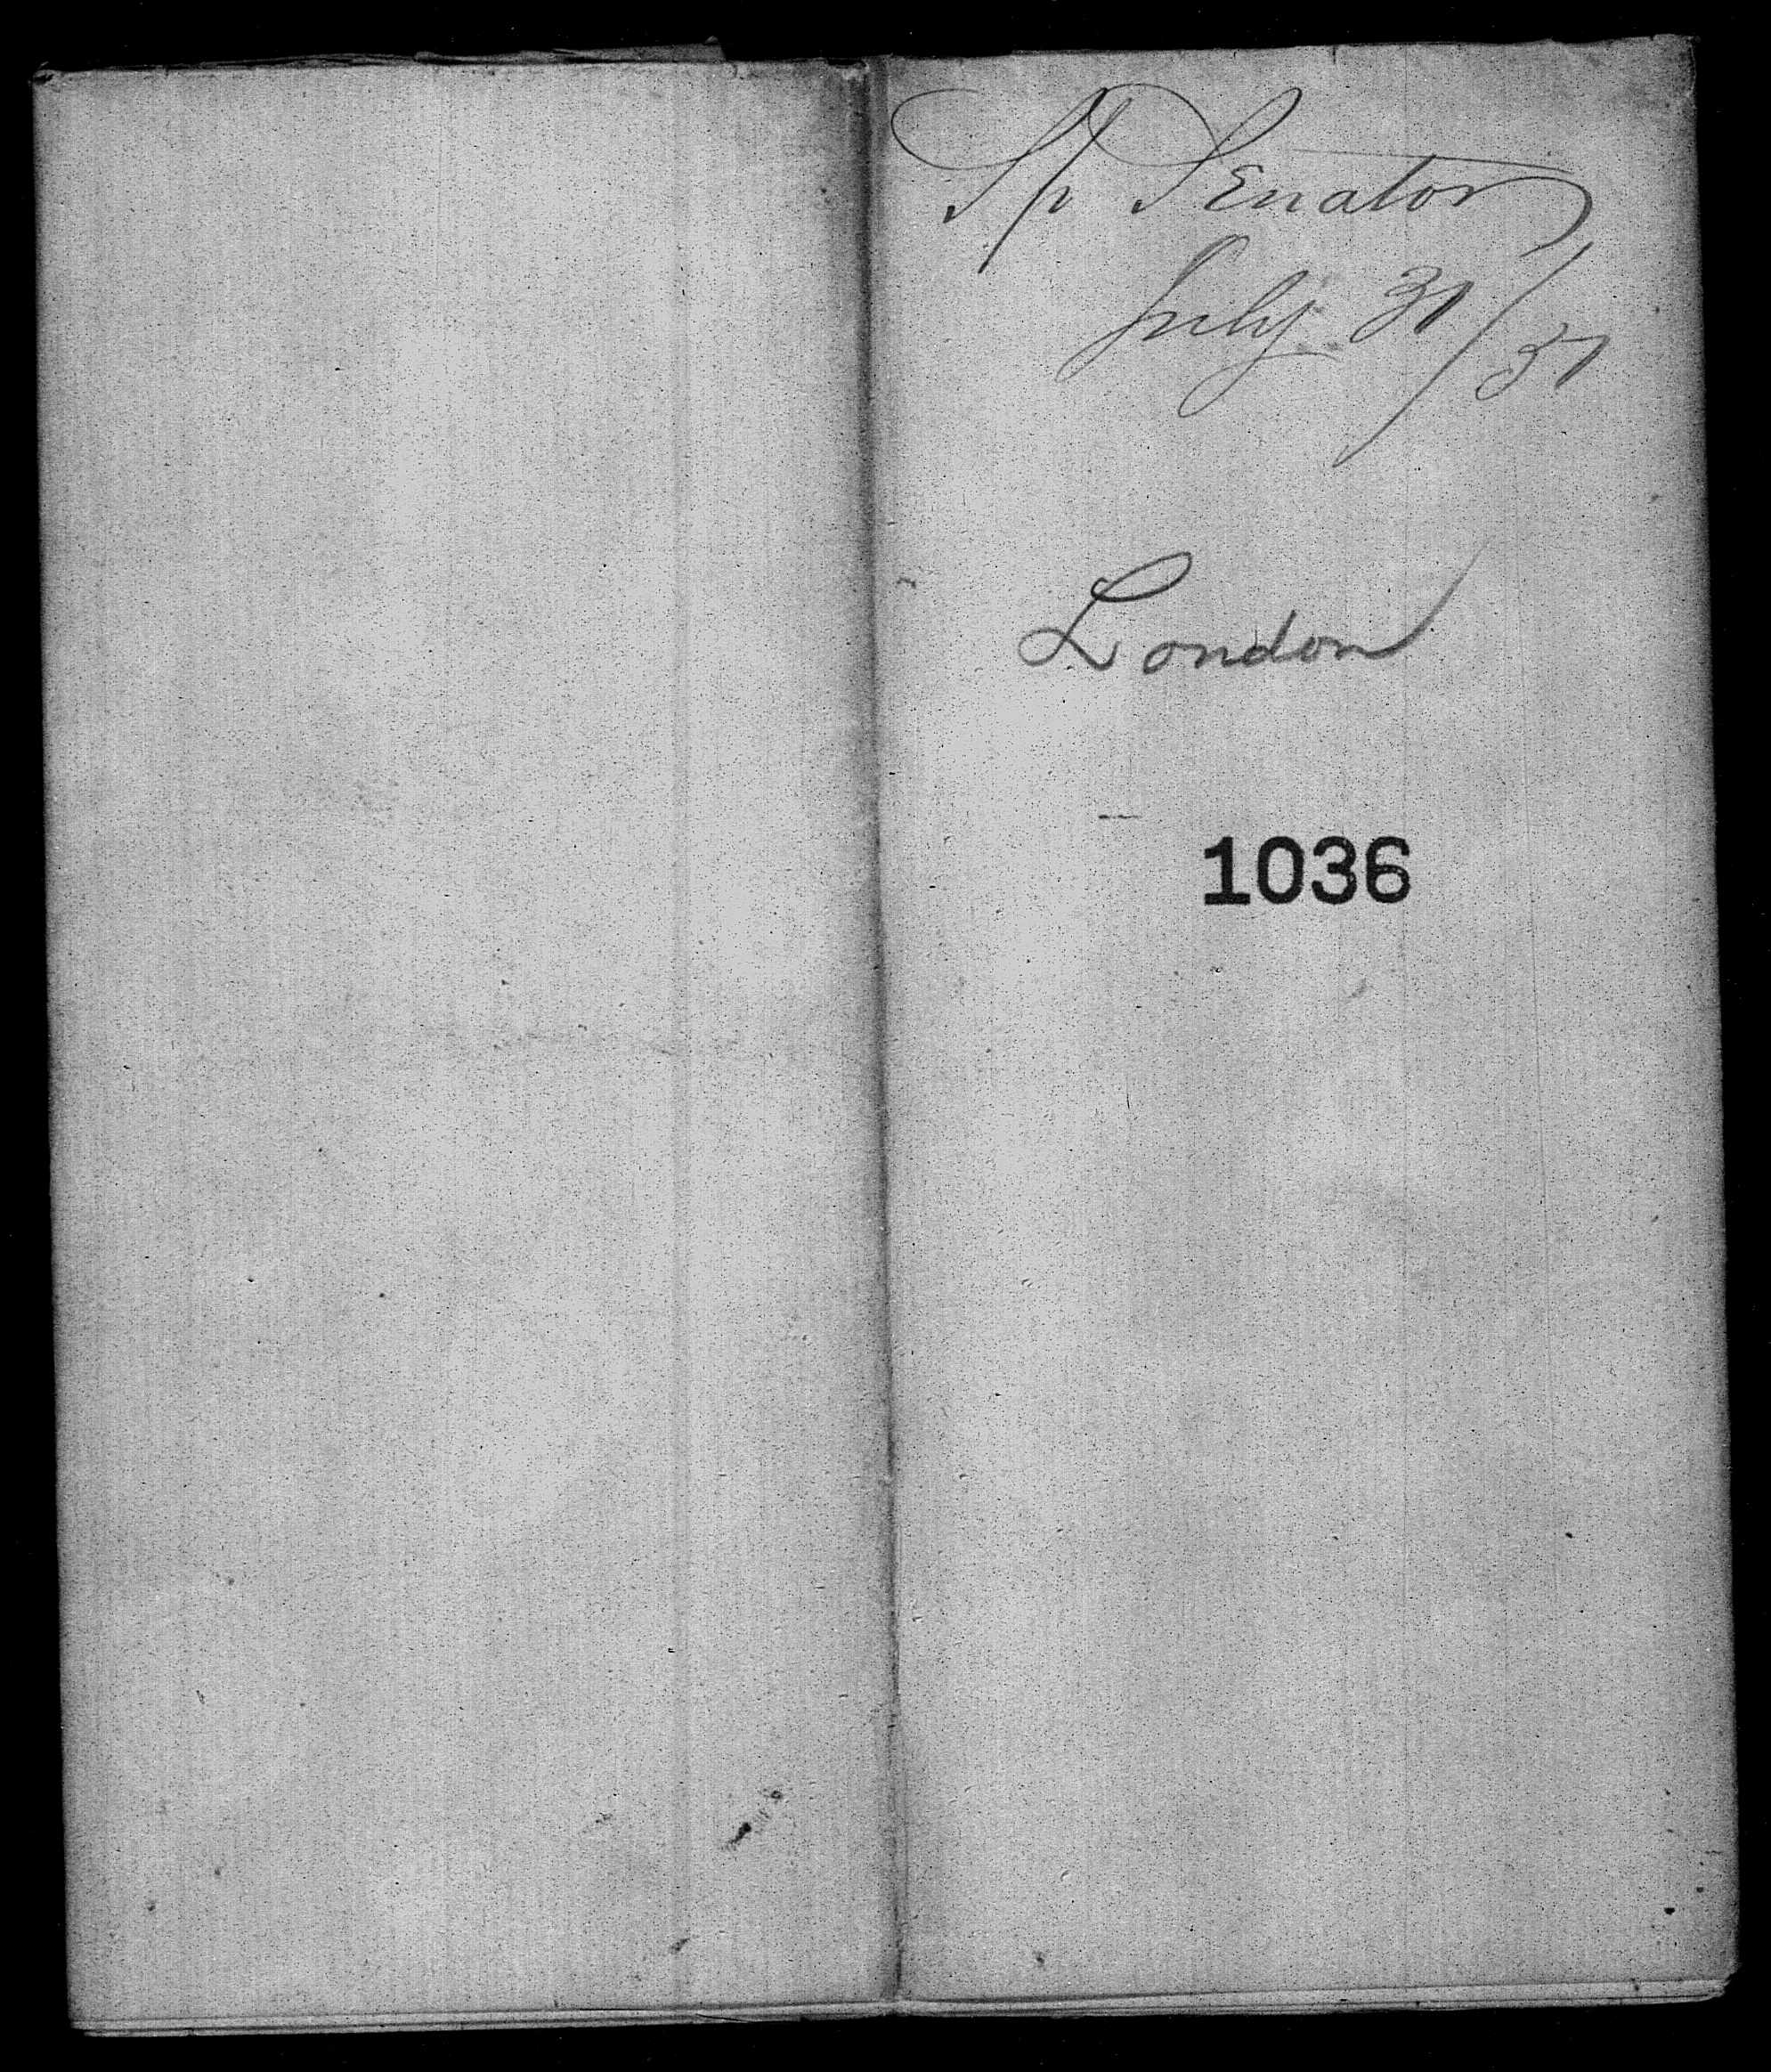 Sp Senator
July 31/51
London
1036